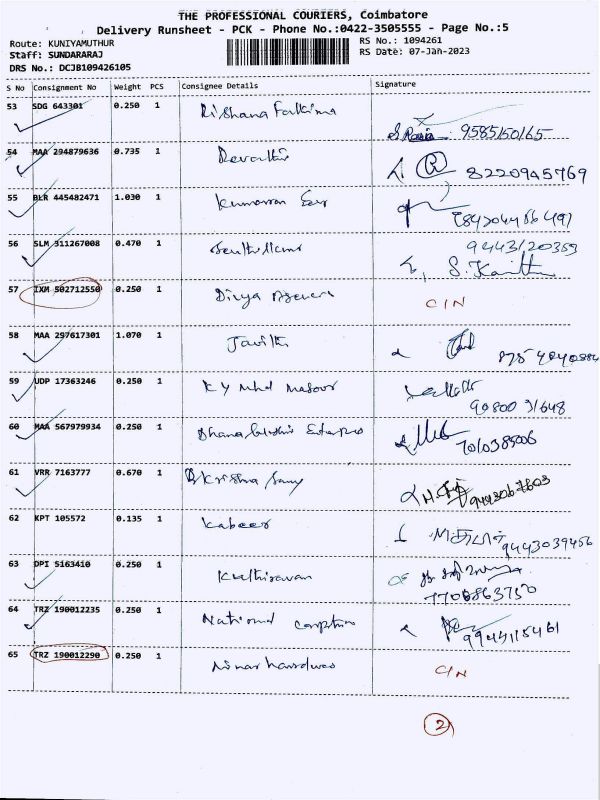 THE PROFESSIONAL COURIERS, Coimbatore
Delivery Runsheet - PCK - Phone No.:0422-3505555 - Page No.:5
Route: KUNIYAMUTHUR RS No.: 1094261
Staff: SUNDARARAJ RS Date: 07-Jan-2023
DRS No.: DCJB109426105
S No Consignment No Weight PCS Consignee Details Signature
53 SDG 643301 0.250 1 Rishana Fathima 9585150165
54 MAA 294879636 0.735 1 Revathi 8220945769
55 BLR 445482471 1.030 1
56 SLM 311267008 0.470 1 9443120359
57 IXM 502712550 0.250 1 Divya C/N
58 MAA 297617301 1.070 1
59 UDP 17363246 0.250 1 K Y Mhd 9080031648
60 MAA 567979934 0.250 1 7010385006
61 VRR 7163777 0.670 1 Krishna Samy 9443067603
62 KPT 105572 0.135 1 Kabeer 9443039456
63 DPI 5163410 0.250 1 Kathiravan 7708863750
64 TRZ 190012235 0.250 1 National
65 TRZ 190012290 0.250 1 C/N
2